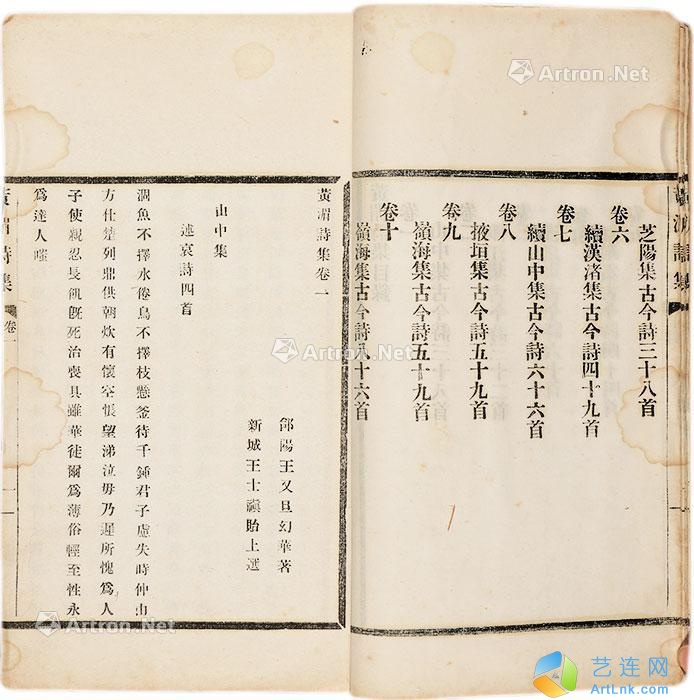 芝陽集古今詩三十八首
卷六
續漢渚集古今詩四十九首
卷七
續山中集古今詩六十六首
卷八
掖垣集古今詩五十九首
卷九
嶺海集古今詩五十九首
卷十
嶺海集古今詩八十六首
黃湄詩集卷一
郃陽王又旦幻華著
新城王士禛貽上選
山中集
述哀詩四首
涸魚不擇水倦鳥不擇枝懸釜待千鍾君子慮失時仲由
方仕楚列鼎供朝炊有懷空悵望涕泣毋乃遲所愧為人
子使親忍長飢既死治喪具雖華徒爾為薄俗輕至性永
為達人嗤
黃湄詩集
卷一
一
Artron.Net
Artron.Net
Artron.Net
Artron.Net
艺连网
ArtLnk.com